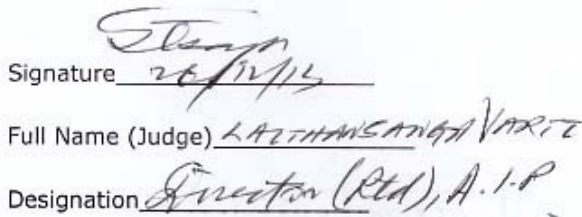 Signature
Full Name (Judge) LALTHANSANGA VARTE
Designation Director (Rtd), A.I.R